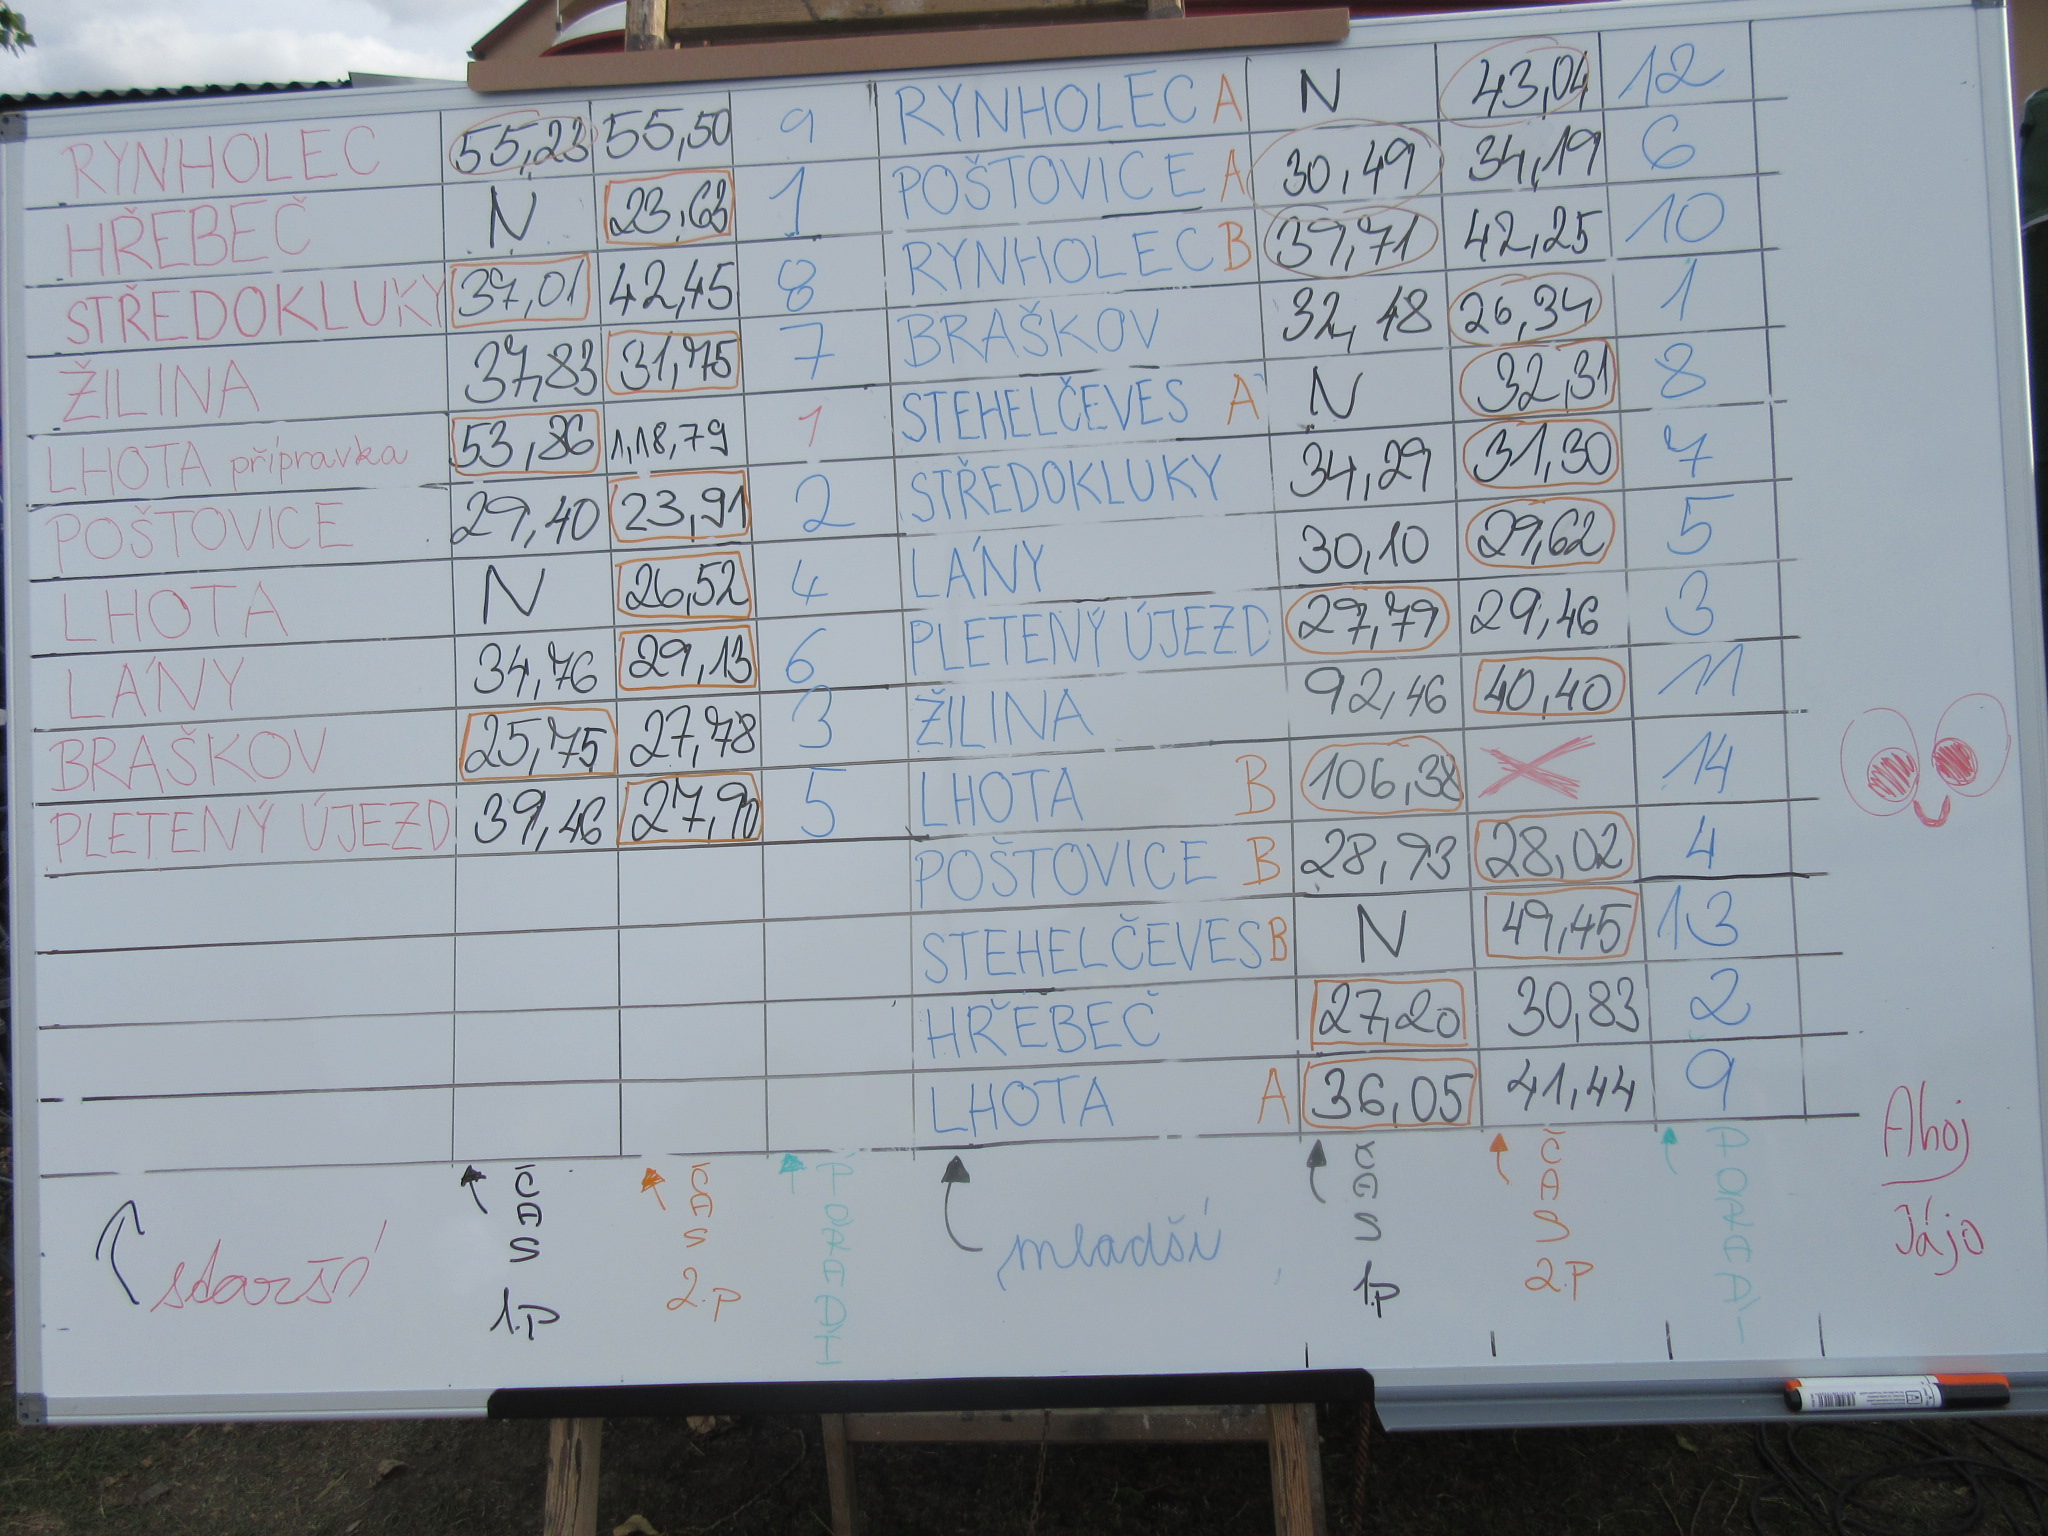 RYNHOLEC 55,23 55,50 9
HŘEBEČ N 23,63 1
STŘEDOKLUKY 37,01 42,45 8
ŽILINA 37,83 31,75 7
LHOTA přípravka 53,86 1,18,79 1
POŠTOVICE 29,40 23,91 2
LHOTA N 26,52 4
LÁNY 34,76 29,13 6
BRAŠKOV 25,75 27,78 3
PLETENÝ ÚJEZD 39,46 27,90 5
starší
ČAS 1.P
ČAS 2.P
RYNHOLEC A N 43,04 12
POŠTOVICE A 30,49 34,19 6
RYNHOLEC B 39,71 42,25 10
BRAŠKOV 32,48 26,34 1
STEHELČEVES A N 32,31 8
STŘEDOKLUKY 34,29 31,30 7
LÁNY 30,10 29,62 5
PLETENÝ ÚJEZD 27,79 29,46 3
ŽILINA 92,46 40,40 11
LHOTA B 106,38 14
POŠTOVICE B 28,93 28,02 4
STEHELČEVES B N 49,45 13
HŘEBEČ 27,20 30,83 2
LHOTA A 36,05 41,44 9
mladší
ČAS 1.P
ČAS 2.P
Ahoj
Jájo